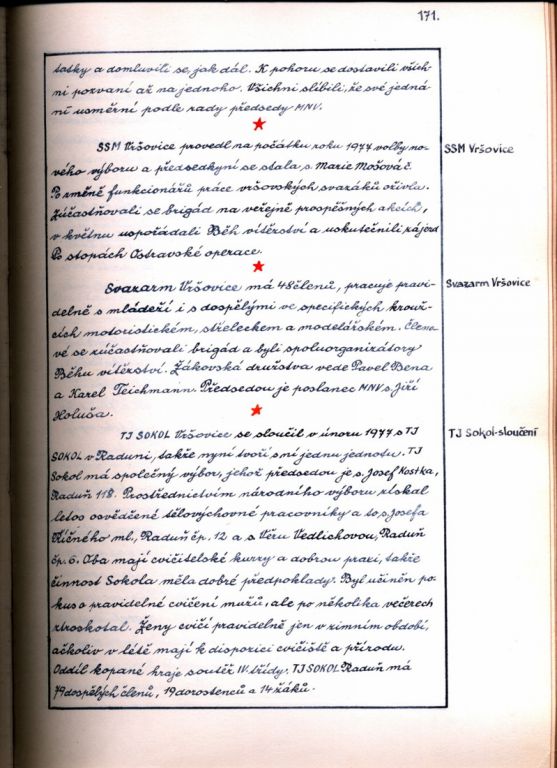 171.
tatky a domluvili se, jak dál. K pohoru se dostavili všich-
ni pozvaní až na jednoho. Všichni slíbili, že své jedná-
ní usměrní podle rady předsedy MNV.
SSM Vršovice
SSM Vršovice provedl na počátku roku 1977 volby no-
vého výboru a předsedkyní se stala s. Marie Mošová č.
Po změně funkcionářů práce vršovských svazáků oživla.
Zúčastňovali se brigád na veřejně prospěšných akcích,
v květnu uspořádali Běh vítězství a uskutečnili zájezd
Po stopách Ostravské operace.
Svazarm Vršovice
Svazarm Vršovice má 48 členů, pracuje pravi-
delně s mládeží i s dospělými ve specifických krouž-
cích motoristickém, střeleckém a modelářském. Členo-
vé se zúčastňovali brigád a byli spoluorganizátory
Běhu vítězství. Žákovská družstva vede Pavel Bena
a Karel Teichmann. Předsedou je poslanec MNV s. Jiří
Holuša.
TJ Sokol-sloučení
TJ SOKOL Vršovice se sloučil v únoru 1977 s TJ
SOKOL v Raduni, takže nyní tvoří s ní jednu jednotu. TJ
Sokol má společný výbor, jehož předsedou je s. Josef Kostka,
Raduň 118. Prostřednictvím národního výboru získal
letos osvědčené tělovýchovné pracovníky a to s. Josefa
Říčného ml., Raduň čp. 12 a s. Věru Vedlichovou, Raduň
čp. 6. Oba mají cvičitelské kurzy a dobrou praxi, takže
činnost Sokola měla dobré předpoklady. Byl učiněn po-
kus o pravidelné cvičení mužů, ale po několika večerech
ztroskotal. Ženy cvičí pravidelně jen v zimním období,
ačkoliv v létě mají k dispozici cvičiště a přírodu.
Oddíl kopané hraje soutěž IV. třídy. TJ SOKOL Raduň má
79 dospělých členů, 19 dorostenců a 14 žáků.